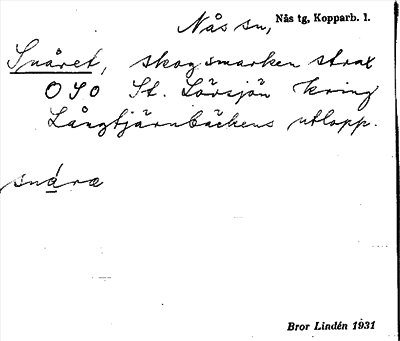 Nås sn, Nås tg, Kopparb. l.
Snåret, skogsmarken strax
OSO St. Lövsjön kring
Långtjärnbäckens utlopp.
snåra
Bror Lindén 1931